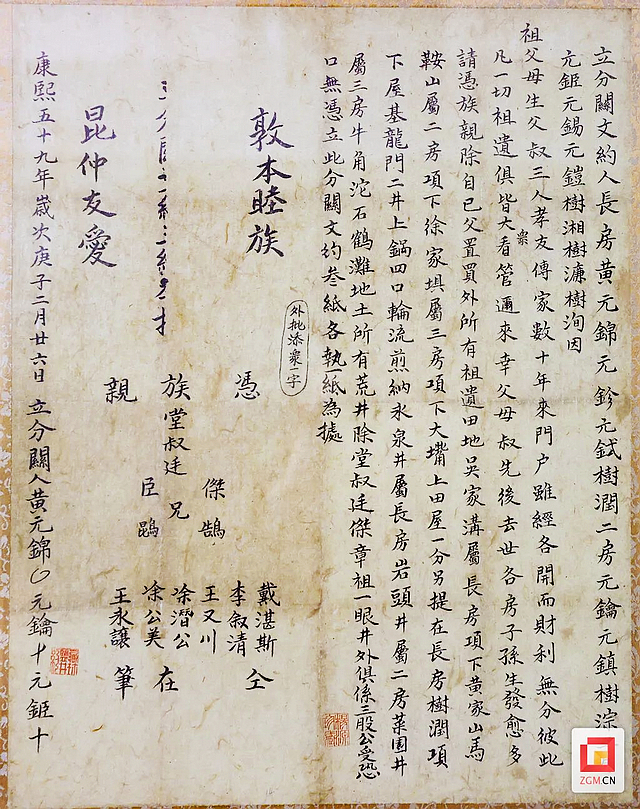 立分關文約人長房黃元錦元鉁元鉽樹潤二房元鑰元鎮樹淙
元鉅元錫元鎧樹湘樹濂樹洵因
祖父母生父叔三人孝友傳家數十年來門户雖經各開而財利無分彼此
凡一切祖遺俱皆大眾看管邇來幸父母叔先後去世各房子孫生發愈多
請憑族親除自已父置買外所有祖遺田地吳家溝屬長房項下黃家山馬
鞍山屬二房項下徐家埧屬三房項下大嘴上田屋一分另提在長房樹潤項
下屋基龍門二井上鍋四口輪流煎納永泉井屬長房岩頭井屬二房菜園井
屬三房牛角沱石鶴灘地土所有荒井除堂叔廷傑章祖一眼井外俱係三股公受恐
口無憑立此分關文約叁紙各執一紙為據
外批添眾一字
敦本睦族
憑 傑鵠 戴湛斯 仝
李叙清
族堂叔廷 兄 王又川
涂潛公 在
親 臣鵾 涂公美
王永讓 筆
昆仲友愛
康熙五十九年歲次庚子二月廿六日 立分關人黃元錦 元鑰十元鉅十
ZGM.CN